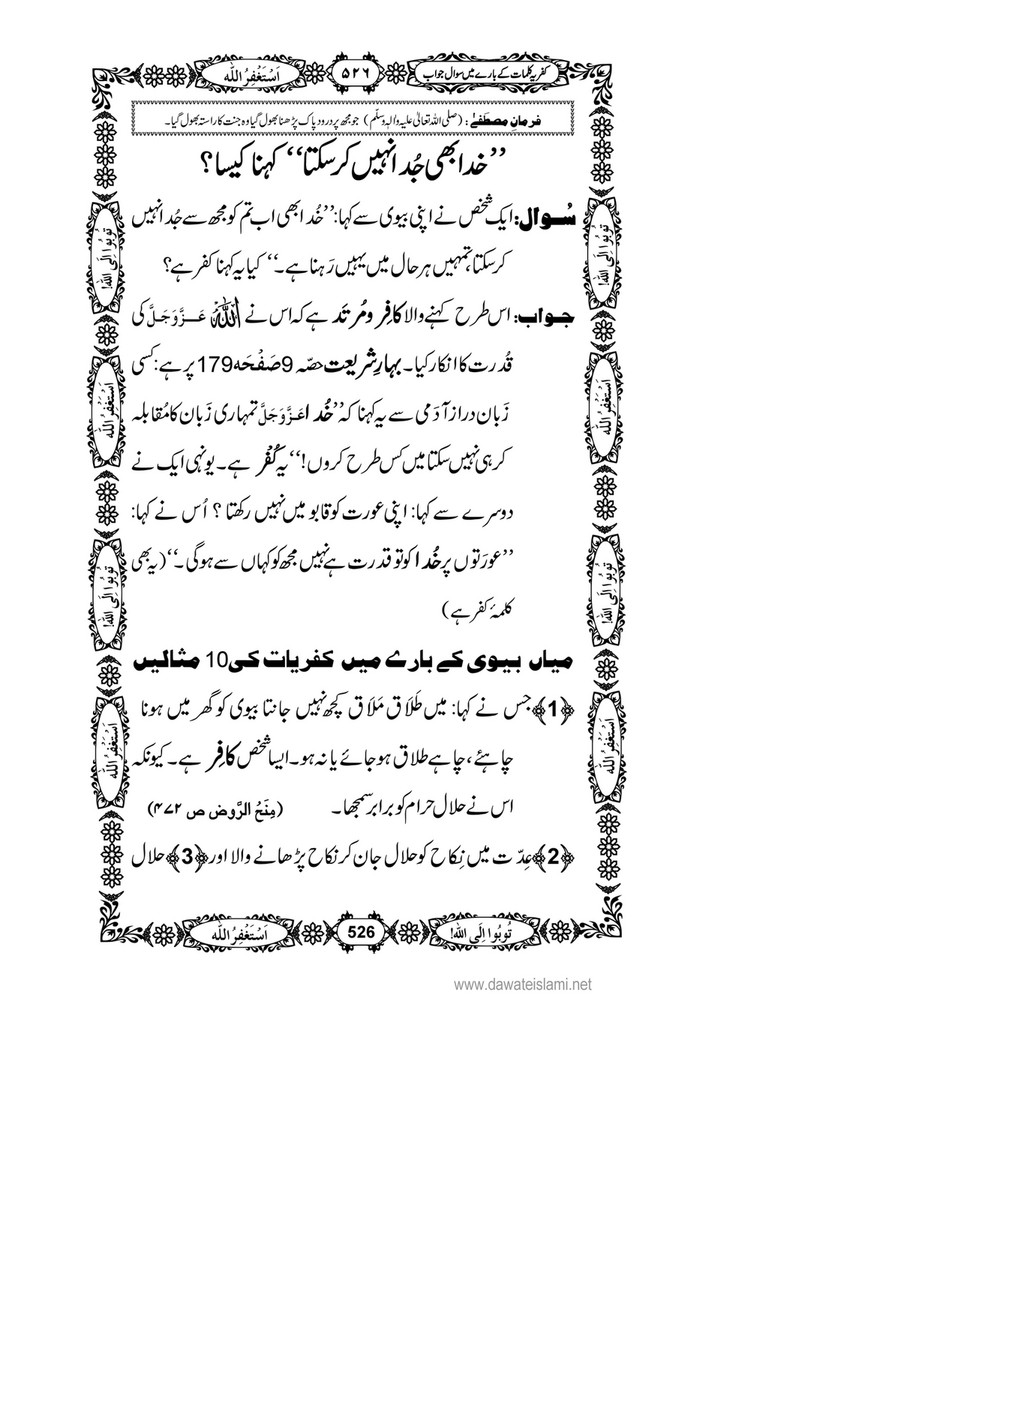 کفریہ کلمات کے بارے میں سوال جواب
۵۲٦
اَسْتَغْفِرُ اللّٰه
فرمانِ مصطَفٰے : (صلی اللہ تعالیٰ علیہ والہٖ وسلّم) جو مجھ پر درود پاک پڑھنا بھول گیا وہ جنت کا راستہ بھول گیا۔
’’خدا بھی جُدا نہیں کر سکتا‘‘ کہنا کیسا؟
سُوال: ایک شخص نے اپنی بیوی سے کہا: ’’خُدا بھی اب تم کو مجھ سے جُدا نہیں
کر سکتا، تمہیں ہر حال میں یہیں رَہنا ہے۔‘‘ کیا یہ کہنا کفر ہے؟
جواب: اس طرح کہنے والا کافِر و مُرتَد ہے کہ اس نے اللّٰہ عَزَّوَجَلَّ کی
قُدرت کا انکار کیا۔ بہارِ شریعت حصّہ 9 صَفْحَہ 179 پر ہے: کسی
زَبان دراز آدَمی سے یہ کہنا کہ ’’خُدا عَزَّوَجَلَّ تمہاری زَبان کا مُقابلہ
کر ہی نہیں سکتا میں کس طرح کروں!‘‘ یہ کُفْر ہے۔ یونہی ایک نے
دوسرے سے کہا: اپنی عورت کو قابو میں نہیں رکھتا ؟ اُس نے کہا:
’’عورَتوں پر خُدا کو تو قدرت ہے نہیں مجھ کو کہاں سے ہوگی۔‘‘ (یہ بھی
کلمۂ کفر ہے)
میاں بیوی کے بارے میں کفریات کی 10 مثالیں
﴿1﴾ جس نے کہا: میں طَلَاق مَلَاق کچھ نہیں جانتا بیوی کو گھر میں ہونا
چاہئے، چاہے طلاق ہو جائے یا نہ ہو۔ ایسا شخص کافِر ہے۔ کیونکہ
اس نے حلال حرام کو برابر سمجھا۔ (مِنَحُ الرَّوض ص ۴۷۲)
﴿2﴾ عِدّت میں نِکاح کو حلال جان کر نکاح پڑھانے والا اور ﴿3﴾ حلال
تُوبُوا اِلَی اللّٰه!
اَسْتَغْفِرُ اللّٰه
تُوبُوا اِلَی اللّٰه!
اَسْتَغْفِرُ اللّٰه
تُوبُوا اِلَی اللّٰه!
اَسْتَغْفِرُ اللّٰه
تُوبُوا اِلَی اللّٰه!
اَسْتَغْفِرُ اللّٰه
تُوبُوا اِلَی اللّٰه!
526
اَسْتَغْفِرُ اللّٰه
www.dawateislami.net